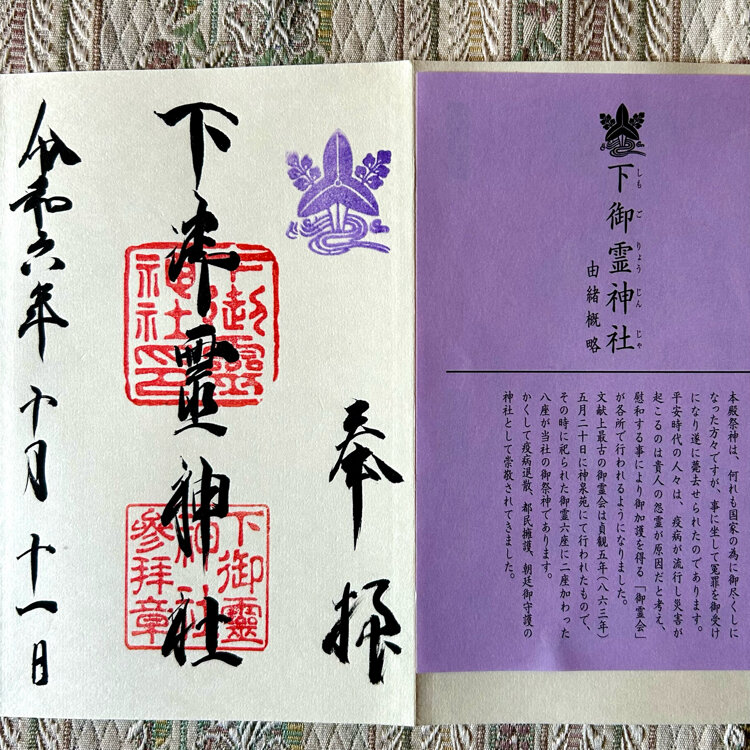 奉拝
下御霊神社
令和六年十月十一日
下御靈神社印
下御靈神社參拜章
下御霊神社
しもごりょうじんじゃ
由緒概略
本殿祭神は、何れも国家の為に御尽くしに
なった方々ですが、事に坐して冤罪を御受け
になり遂に薨去せられたのであります。
平安時代の人々は、疫病が流行し災害が
起こるのは貴人の怨霊が原因だと考え、
慰和する事により御加護を得る「御霊会」
が各所で行われるようになりました。
文献上最古の御霊会は貞観五年（八六三年）
五月二十日に神泉苑にて行われたもので、
その時に祀られた御霊六座に二座加わった
八座が当社の御祭神であります。
かくして疫病退散、都民擁護、朝廷御守護の
神社として崇敬されてきました。